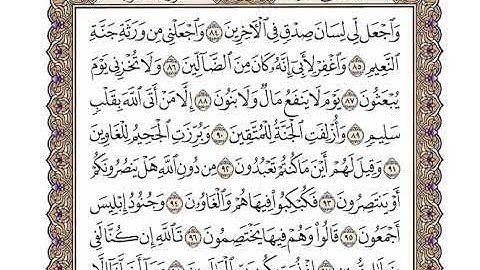 وَٱجْعَل لِّى لِسَانَ صِدْقٍ فِى ٱلْأَخِرِينَ ٨٤ وَٱجْعَلْنِى مِن وَرَثَةِ جَنَّةِ
ٱلنَّعِيمِ ٨٥ وَٱغْفِرْ لِأَبِىٓ إِنَّهُۥ كَانَ مِنَ ٱلضَّآلِّينَ ٨٦ وَلَا تُخْزِنِى يَوْمَ
يُبْعَثُونَ ٨٧ يَوْمَ لَا يَنفَعُ مَالٌ وَلَا بَنُونَ ٨٨ إِلَّا مَنْ أَتَى ٱللَّهَ بِقَلْبٍ
سَلِيمٍ ٨٩ وَأُزْلِفَتِ ٱلْجَنَّةُ لِلْمُتَّقِينَ ٩٠ وَبُرِّزَتِ ٱلْجَحِيمُ لِلْغَاوِينَ
٩١ وَقِيلَ لَهُمْ أَيْنَ مَا كُنتُمْ تَعْبُدُونَ ٩٢ مِن دُونِ ٱللَّهِ هَلْ يَنصُرُونَكُمْ
أَوْ يَنتَصِرُونَ ٩٣ فَكُبْكِبُوا۟ فِيهَا هُمْ وَٱلْغَاوُۥنَ ٩٤ وَجُنُودُ إِبْلِيسَ
أَجْمَعُونَ ٩٥ قَالُوا۟ وَهُمْ فِيهَا يَخْتَصِمُونَ ٩٦ تَٱللَّهِ إِن كُنَّا لَفِى